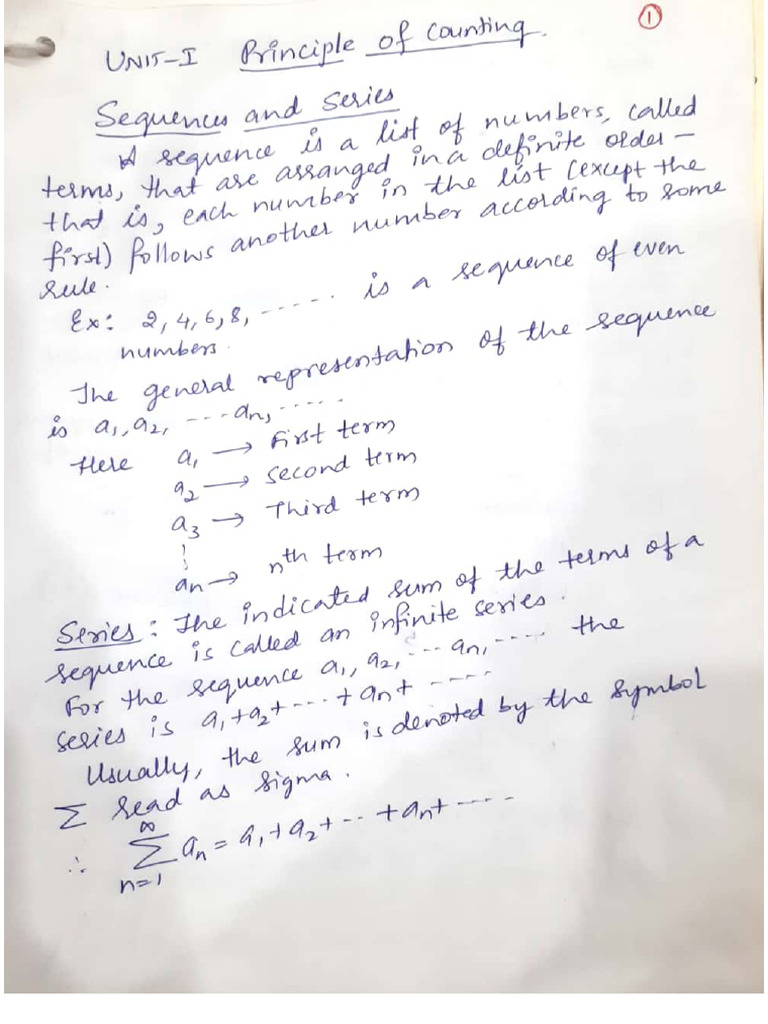 ①
UNIT-I Principle of Counting.
Sequences and Series
A sequence is a list of numbers, called
terms, that are arranged in a definite order –
that is, each number in the list (except the
first) follows another number according to some
rule.
Ex: 2, 4, 6, 8, ----- is a sequence of even
numbers.
The general representation of the sequence
is a₁, a₂, --- aₙ, -----
Here a₁ → First term
a₂ → Second term
a₃ → Third term
⋮
aₙ → nth term
Series: The indicated sum of the terms of a
sequence is called an infinite series.
For the sequence a₁, a₂, --- aₙ, ---- the
series is a₁+a₂+ --- + aₙ + ----
Usually, the sum is denoted by the symbol
Σ read as sigma.
∴ ∞∑n=1 aₙ = a₁+a₂+ -- + aₙ+ ----